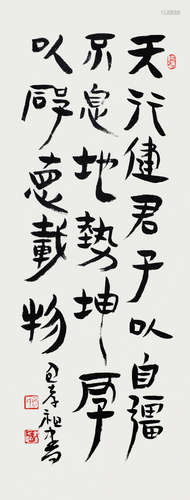 天行健君子以自彊
不息地勢坤
以厚德載物
孝祖書